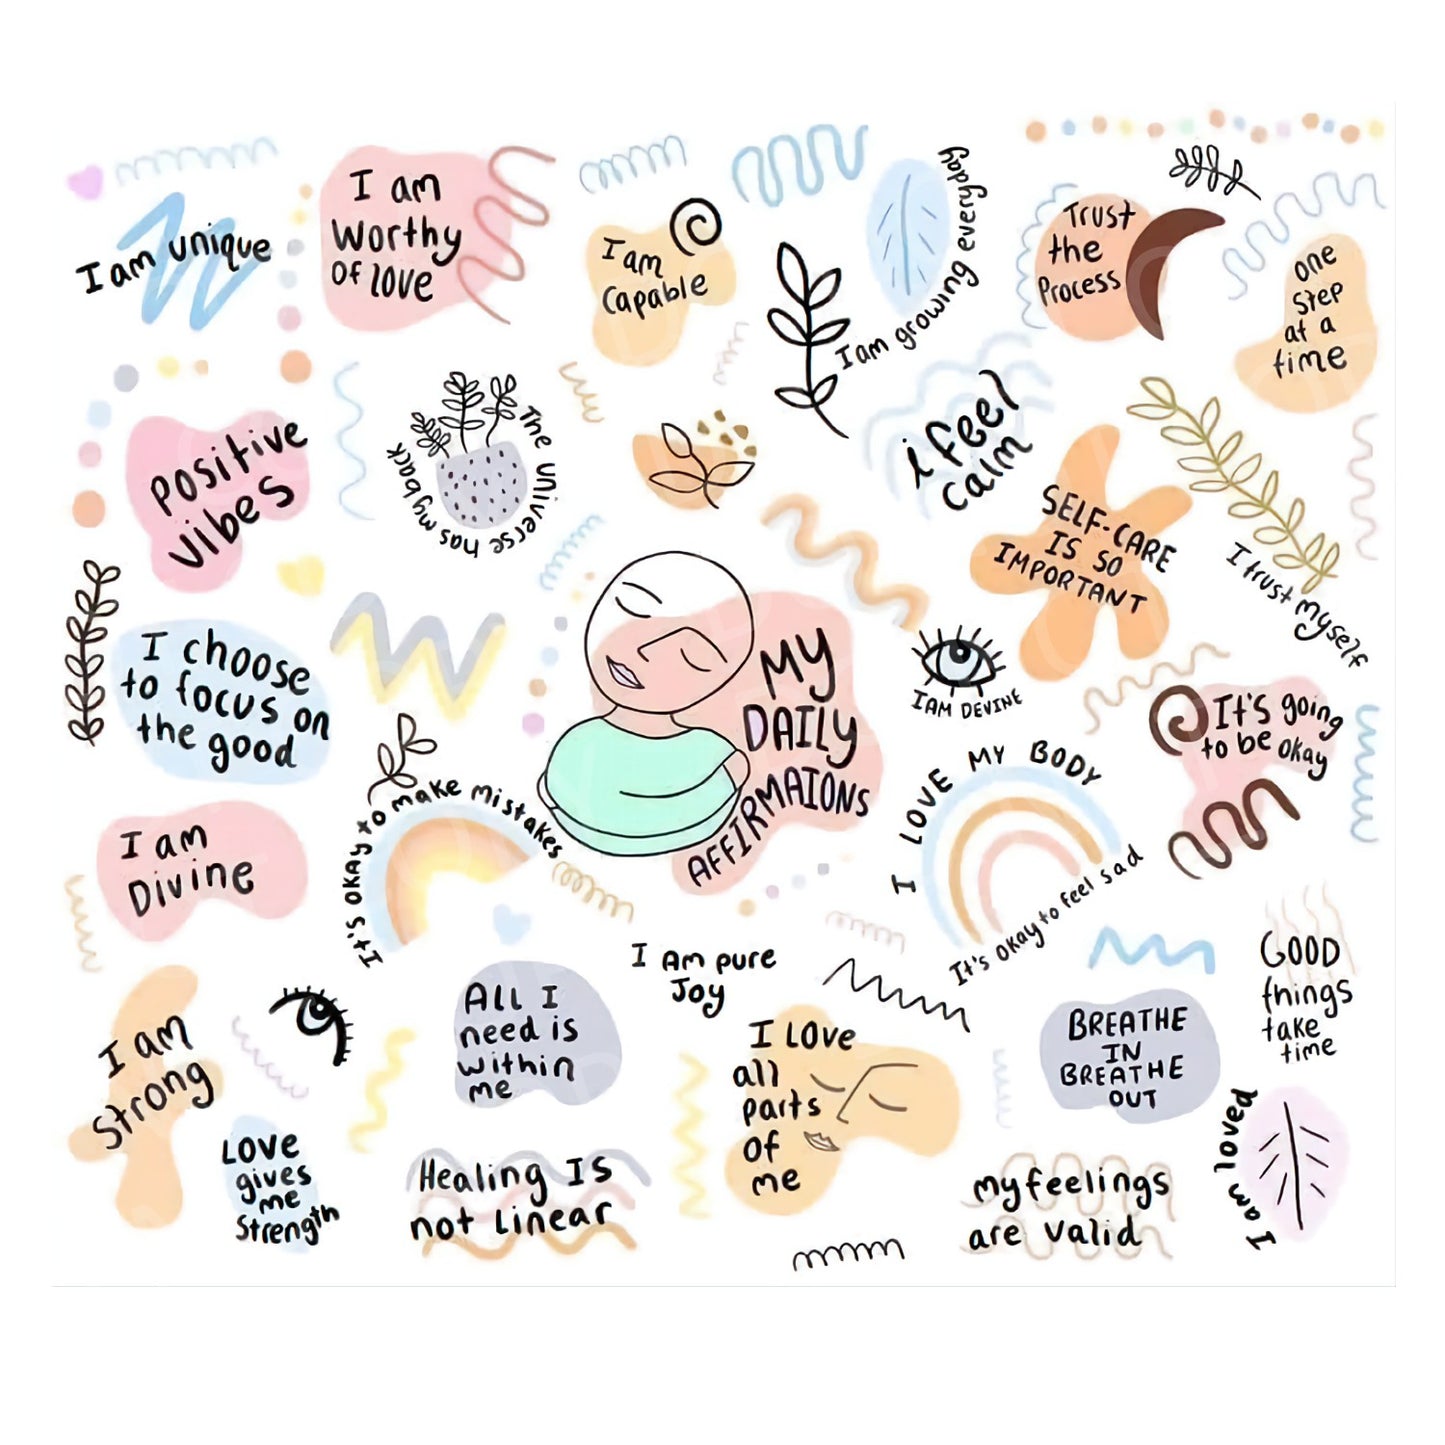 I am unique
I am
Worthy
Of love
I am
Capable
I am growing everyday
Trust
the
Process
one
step
at a
time
Positive
vibes
The universe has my back
i feel
calm
SELF-CARE
IS SO
IMPORTANT
I trust myself
I choose
to focus on
the good
MY
DAILY
AFFIRMAIONS
IAM DEVINE
It's going
to be okay
I am
Divine
It's okay to make mistakes
I LOVE MY BODY
It's okay to feel sad
I am
Strong
ALL I
need is
within
me
I Am pure
Joy
I LOVE
all
parts
of
me
BREATHE
IN
BREATHE
OUT
GOOD
things
take
time
LOVE
gives
me
Strength
Healing IS
not linear
my feelings
are valid
I am loved